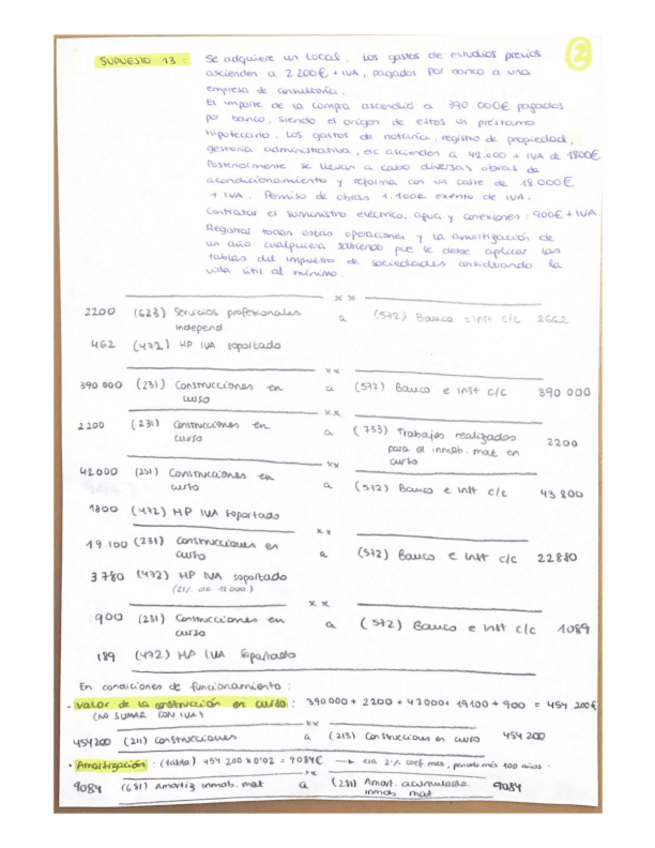 SUPUESTO 13 : Se adquiere un local. Los gastos de estudios previos 2
ascienden a 2200€ + IVA, pagados por banco a una
empresa de consultoría.
El importe de la compra ascendió a 390.000€ pagados
por banco, siendo el origen de estos un préstamo
hipotecario. Los gastos de notaría, registro de propiedad,
gestoría administrativa, etc ascienden a 42.000 + IVA de 1800€
Posteriormente se llevan a cabo diversas obras de
acondicionamiento y reforma con un coste de 18.000€
+ IVA. Permiso de obras 1.100€ exento de IVA.
Contratar el suministro eléctrico, agua y conexiones: 900€ + IVA.
Registrar todas estas operaciones y la amortización de
un año cualquiera sabiendo que se debe aplicar las
tablas del impuesto de sociedades considerando la
vida útil al mínimo.
x x
2200 (623) Servicios profesionales a (572) Banco e inst c/c 2662
independ.
462 (472) HP IVA soportado
x x
390 000 (231) Construcciones en a (572) Banco e inst c/c 390 000
curso
x x
2200 (231) Construcciones en a (733) Trabajos realizados 2200
curso para el inmob. mat en
curso
x x
42000 (231) Construcciones en a (572) Banco e inst c/c 43 800
curso
1800 (472) HP IVA soportado
x x
19.100 (231) Construcciones en a (572) Banco e inst c/c 22880
curso
3780 (472) HP IVA soportado
(21% de 18000)
x x
900 (231) Construcciones en a (572) Banco e inst c/c 1089
curso
189 (472) HP IVA soportado
En condiciones de funcionamiento :
· Valor de la construcción en curso : 390000 + 2200 + 42000 + 19100 + 900 = 454.200€
(NO SUMAR CON IVA)
x x
454200 (211) Construcciones a (213) Construcciones en curso 454 200
· Amortización : (tabla) 454 200 x 0'02 = 9084€ → 2% coef. max, periodo máx 100 años.
x x
9084 (681) Amortiz inmob. mat a (281) Amort. acumulada 9084
inmob mat